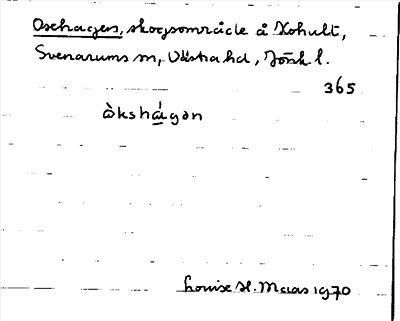 Oxehagen, skogsområde å Kohult,
Svenarums sn, Västra hd, Jönk. l.
365
òkshá̱gən
Louise H. Maas 1970